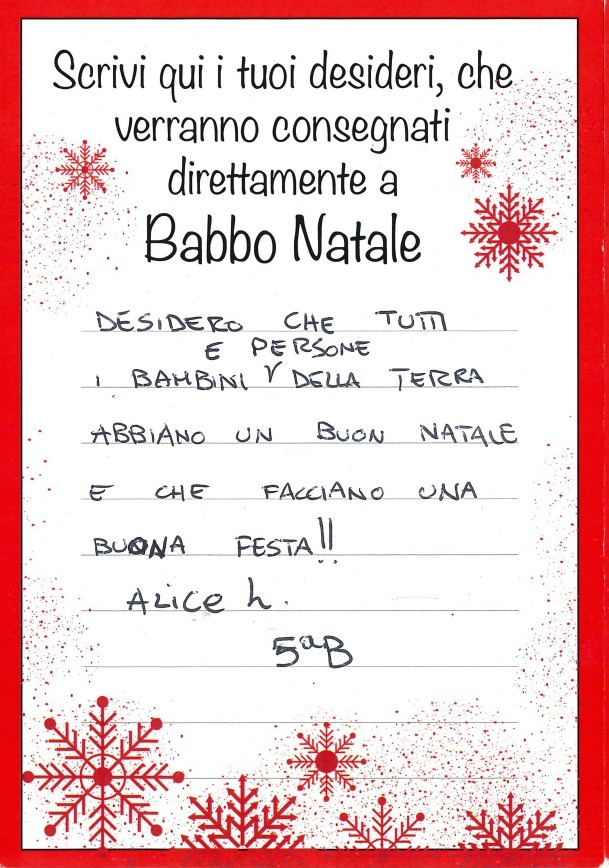 Scrivi qui i tuoi desideri, che
verranno consegnati
direttamente a
Babbo Natale
DESIDERO CHE TUTTI
E PERSONE
I BAMBINI V DELLA TERRA
ABBIANO UN BUON NATALE
E CHE FACCIANO UNA
BUONA FESTA!!
ALICE h.
5ªB